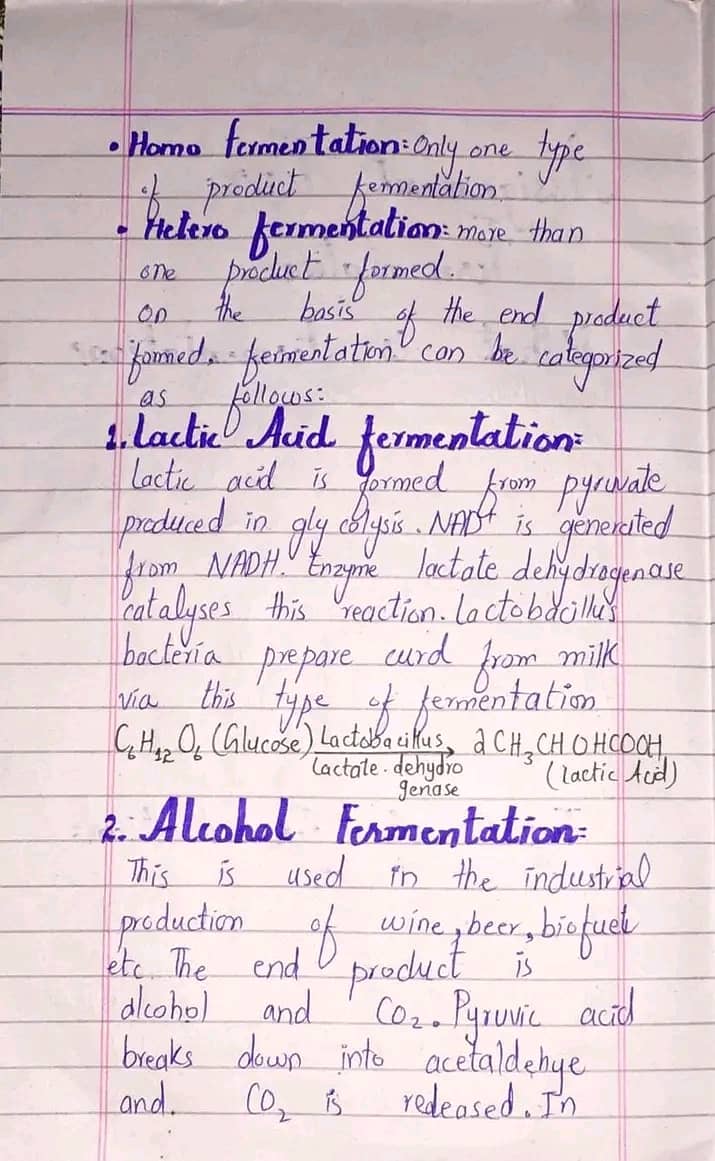 • Homo fermentation: Only one type
of product fermentation.
• Hetero fermentation: more than
one product formed.
on the basis of the end product
formed, fermentation can be categorized
as follows:
1. Lactic Acid fermentation:
Lactic acid is formed from pyruvate
produced in glycolysis. NAD⁺ is generated
from NADH. Enzyme lactate dehydrogenase
catalyses this reaction. Lactobacillus
bacteria prepare curd from milk
via this type of fermentation
C₆H₁₂O₆ (Glucose) Lactobacillus → 2 CH₃CHOHCOOH
Lactate-dehydro (Lactic Acid)
genase
2. Alcohol Fermentation:
This is used in the industrial
production of wine, beer, biofuel
etc. The end product is
alcohol and CO₂. Pyruvic acid
breaks down into acetaldehye
and. CO₂ is redeased. In